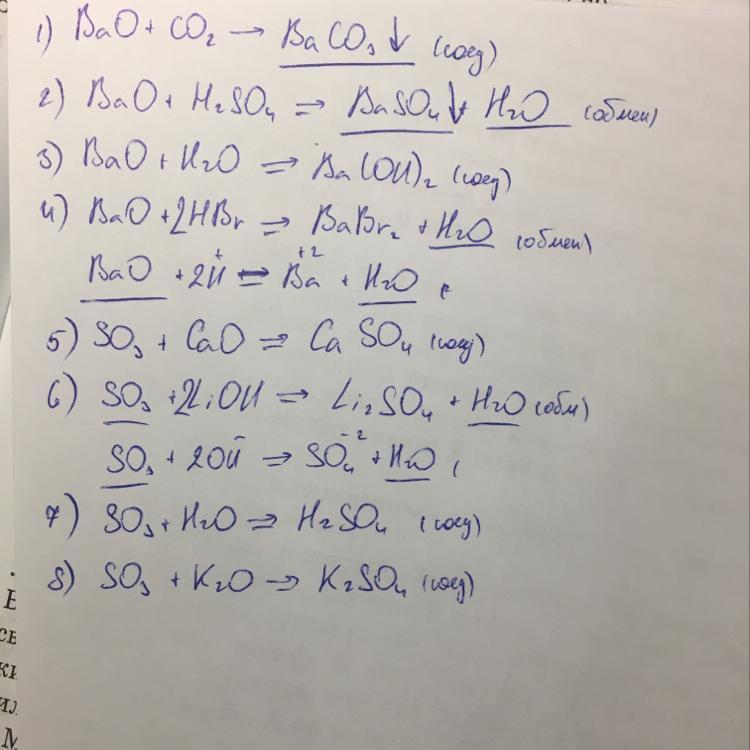 1) BaO + CO₂ → BaCO₃↓ (соед)
2) BaO + H₂SO₄ ⇒ BaSO₄↓ + H₂O (обмен)
3) BaO + H₂O ⇒ Ba(OH)₂ (соед)
4) BaO + 2HBr ⇒ BaBr₂ + H₂O (обмен)
BaO + 2H⁺ ⇒ Ba⁺² + H₂O (
5) SO₃ + CaO ⇒ CaSO₄ (соед)
6) SO₃ + 2LiOH ⇒ Li₂SO₄ + H₂O (обм)
SO₃ + 2OH⁻ ⇒ SO₄⁻² + H₂O (
7) SO₃ + H₂O ⇒ H₂SO₄ (соед)
8) SO₃ + K₂O ⇒ K₂SO₄ (соед)